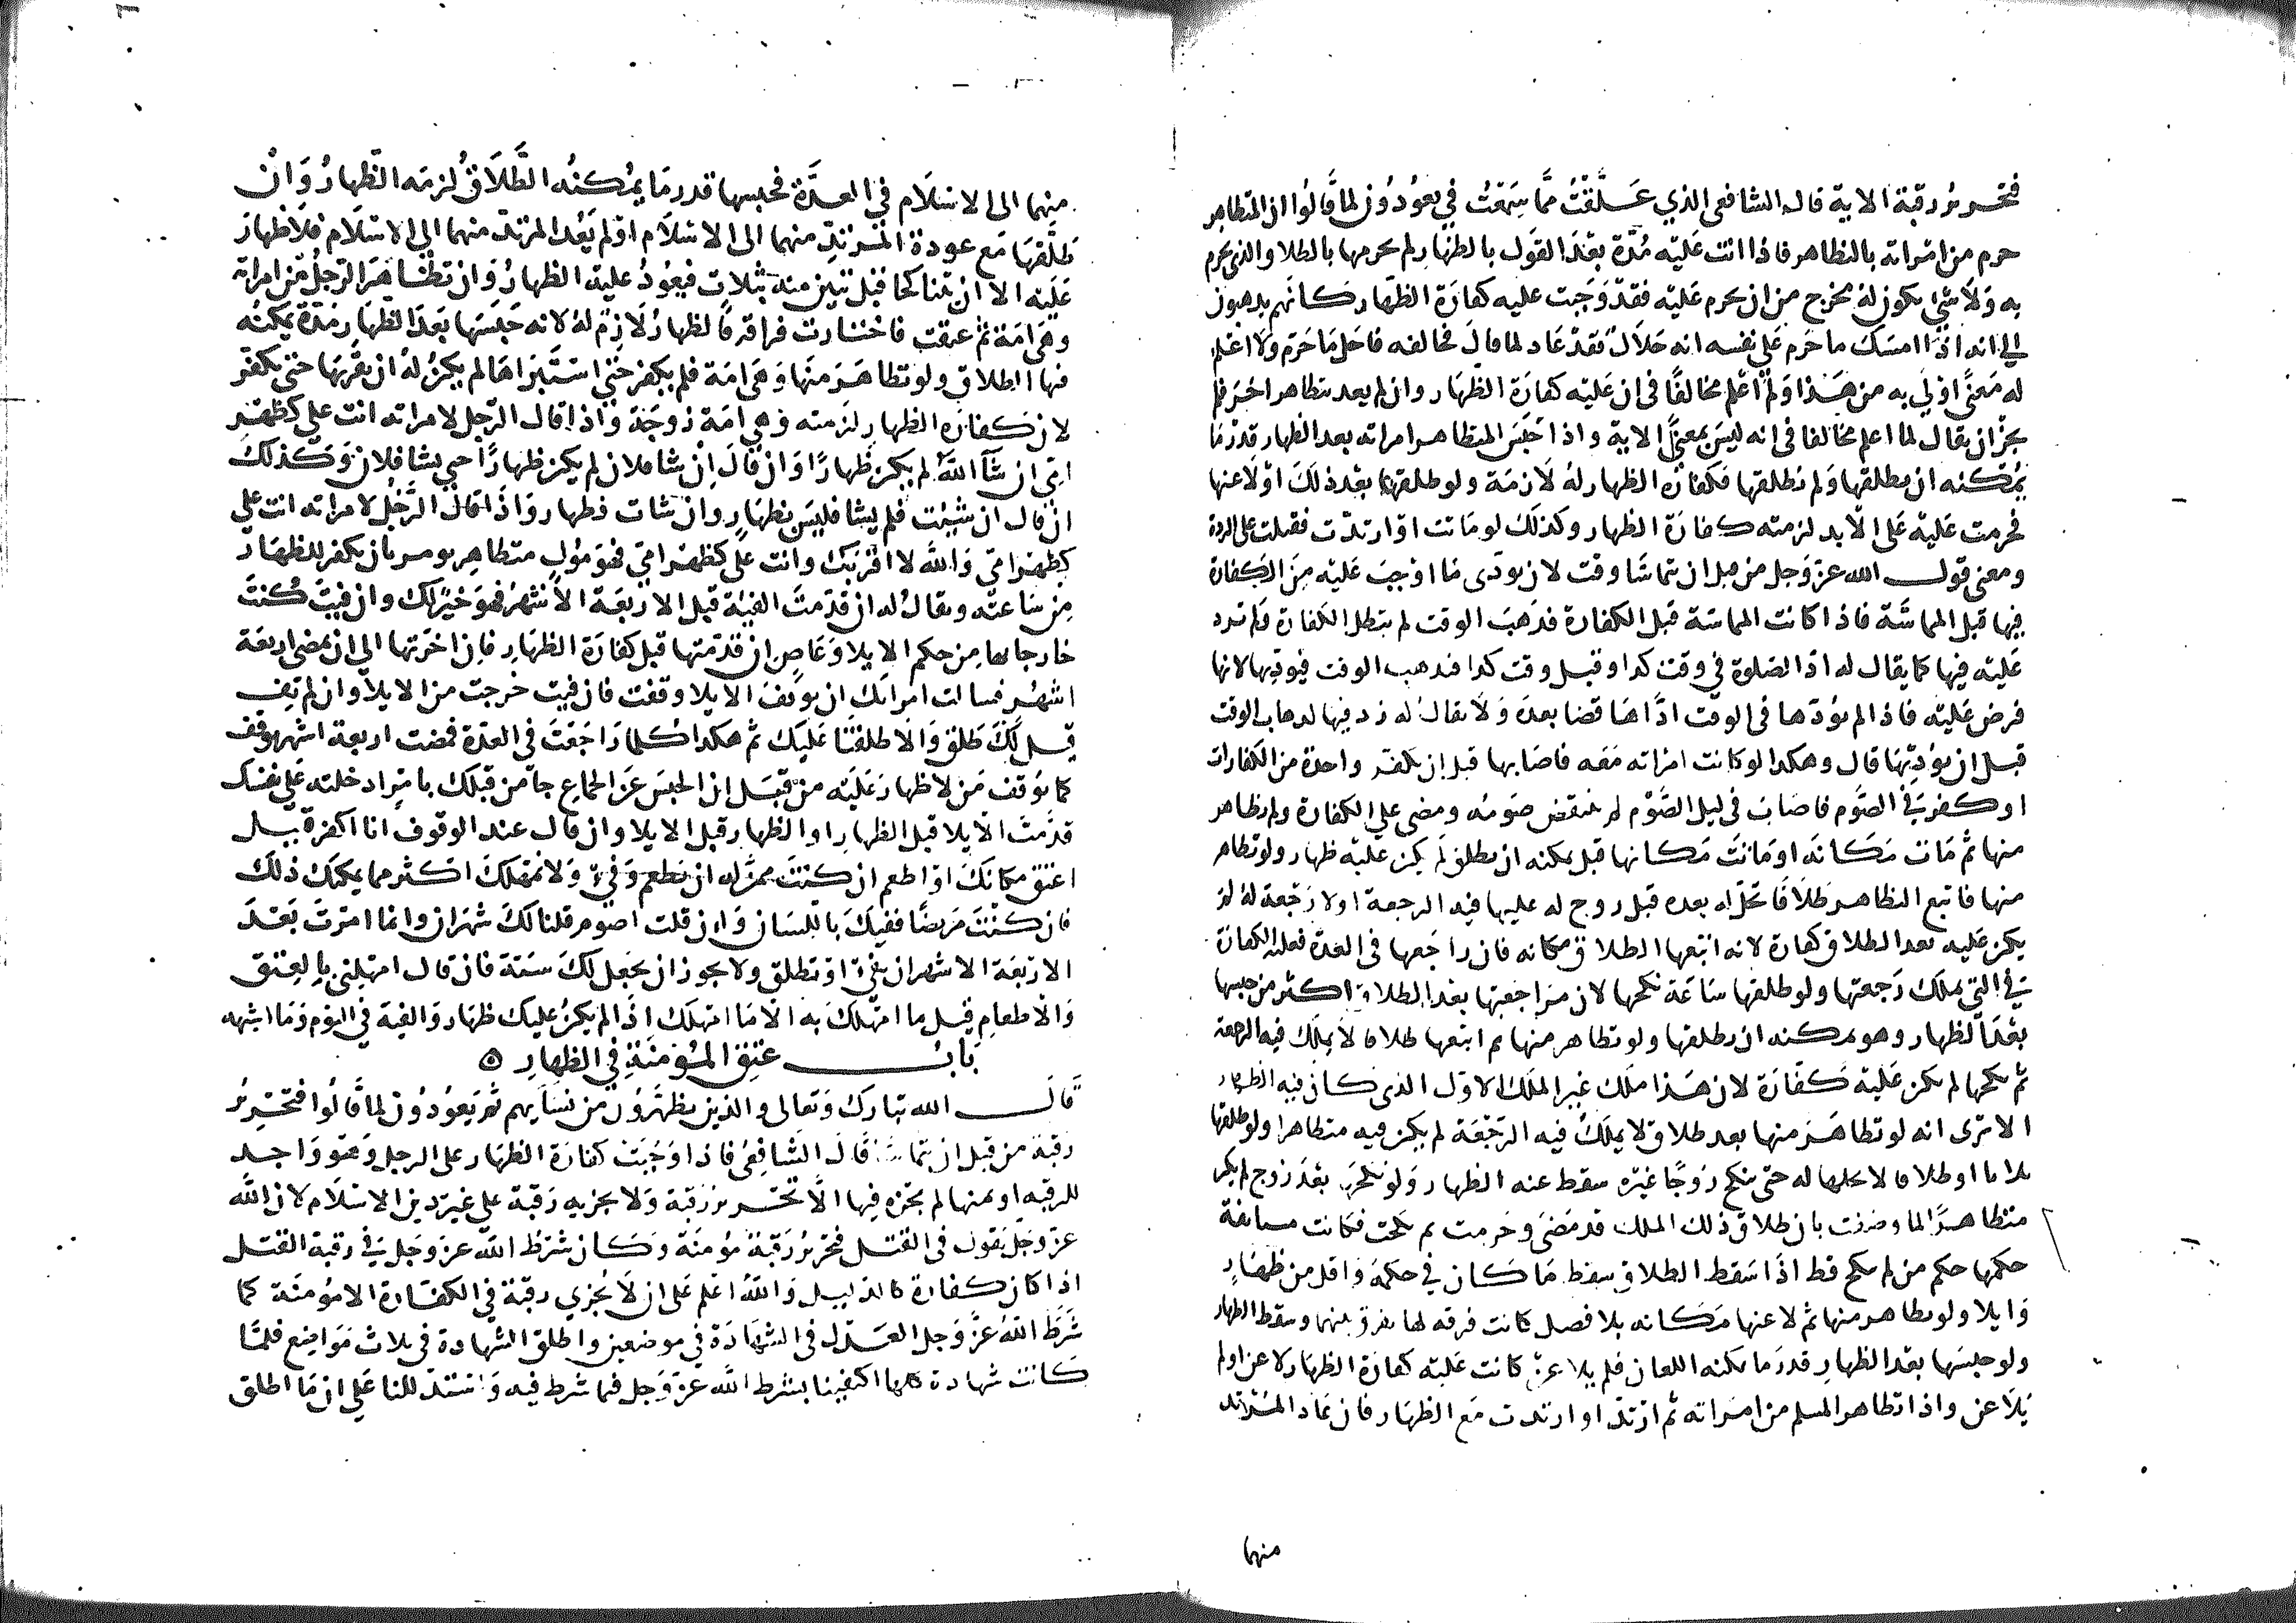 فتحرير رقبة الاية قال الشافعي الذي عَلَّقْتُ ممَّا سَمعْتُ في يعُودُون لما قَالُوا ان المتظاهر
حرم من امراته بالتظاهر فاذا اتت عَليْه مُدّة بعْدَ القَول بالظهَار لم يحرمها بالطلاق الذي يحرم
به وَلا شي يكون لهُ مخرج من ان يحرم عَليْه فقدْ وَجَبت عليه كفارة الظهَار كَانهم يذهبون
الي انه اذا امسَك ما حَرم عَلي نفسه انه حَلال فقدْ عَاد لما قالَ فخالفه فاحل مَا حَرّم وَلا اعلم
له مَعنًى اولَي به من هَذا وَلم اعْلم مخالفًا في ان عَليْه كفارة الظهَار وان لم يعد بتظاهر اخرَ فلم
يجز ان يقال لما اعلم مخالفا في انه ليسَ بمعنَى الاية واذا حَبَس المتظاهر امراته بعد الظهار قدْرَ مَا
يمُكنه ان يطلقها وَلم يُطلقها فكفارة الظهار لهُ لازمَة ولو طلقها بعْد ذلكَ اوْ لاعنها
فحرمت عَليْه عَلى الابد لزمته كفارَة الظهار وكذلكَ لو مَاتت اوْ ارتدّت فقتلت على الردة
ومعني قول الله عزّ وَجل من قبل ان يتماسَّا وقت لان يؤدى مَا اوْجَبَ عَليْه مِنَ الكفارة
فيها قبل المماسَّة فاذا كانت المماسَّة قبْل الكفارة فذهبَ الوقت لم تبْطل الكفارة وَلم تزد
عَليْه فيها كما يقال له ادّ الصَلوة في وقت كذا وقبل وقت كذا فيذهب الوقت فيؤدّيها لانها
فرض عَليْه فاذا لم يُؤدّها في الوقت ادَّاهَا قضا بعدَهُ وَلا يقالُ له زد فيها لذهاب الوقت
قبل ان تؤدّيهَا قال وهكذا لو كانت امْراته مَعَه فاصَابها قبل ان يكفر واحدة من الكفارات
اوكفر في الصَّوم فاصَابَ في ليل الصَّوْم لم ينتقض صَومُه ومضى علي الكفارة ولو تظاهر
منها ثم مَات مَكَانَه اومَاتتْ مَكَانها قبل يمكنه ان يطلق لم يكن عَليْه ظهار ولو تظاهر
منها فاتبع التظاهر طَلاقًا تحلّ له بعده قبل زوج له عليها فيه الرجعة اولا رَجْعة لهُ لم
يكن عَليه بعد الطلاق كفارة لانه اتبعها الطلاق مكانه فان راجَعها في العدة فعليه الكفارة
في التي يملك رَجعتها ولو طلقها سَاعَة نكحها لان مرَاجعَتها بعْد الطلاق اكثر من حبسها
بعْدَ الظهار وهو يمكنه ان يطلقها ولو تظاهر منها ثم اتبعها طلاقا لا يملك فيه الرجعة
ثم نكحها لم يكن عَليْه كَفّارَة لان هَذا ملك غير الملك الاوّل الذي كان فيه الظهار
الا ترى انه لو تظاهَر منها بعد طلاق لا يملكُ فيه الرّجْعَة لم يكن فيه متظاهرا ولو طلقها
ثلاثا او طلاقا لا تحل له حتى تنكح زوجًا غيرَه سقط عنه الظهار وَلو نكحَها بعْدَ زوج لم يكن
متظاهرًا لما وصفت بان طلاق ذلك الملك قد مَضَى وحَرمت ثم نكحت فكانت مستانفة
حكمها حكم من لم ينكح قط اذا سَقط الطلاق سقط مَا كَان في حكمه وَاقل من ظهَارٍ
وَايلا ولو تظاهر منها ثم لاعنها مكَانه بلا فصل كانت فرقه لها يفرق بينهما وسقط الظهار
ولو حبسَها بعْد الظهار قدرَ ما يمكنه اللعان فلم يلاعن كانت عَليْه كفارَة الظهَار لاعن اولم
يُلاعن واذا تظاهر المسلم من امراته ثم ارتدّ او ارتدت مَع الظهَار فان عَاد المُرْتد
منهما
منهما الي الاسْلام في العدَّة فحبسها قدر مَا يمُكنُه الطَّلاقُ لزمَه الظّهارُ وَانْ
طَلَّقهَا مَع عودة المرْتدّ منهما الى الاسْلام اوْ لم يَعُد المرتدّ منهما الى الاسْلام فلا ظهارَ
عَليْه الا ان يتناكحا قبل تبين منه بثلاث فيعُودُ عليه الظهارُ وَان تظاهَر الرّجلُ مِن امراته
وهي امَة ثم عتقت فاختارت فراقه فالظهارُ لازمٌ لهُ لانه حَبَسَها بَعدَ الظهَار مُدّة يمكنُه
فيها الطلاق ولو تظاهَر منهَا وَهي امَة فلم يكفر حَتى اشتَراهَا لم يكنْ لهُ ان يقربهَا حتى يكفّر
لان كفارة الظهار لَزمته وهي امَة زوجَة وَاذا قال الرّجل لامراته انت علي كظهْر
امّي ان شآء الله لم يكن ظهارًا وَان قالَ اِنْ شا فلان لم يكن ظهارًا حتي يشا فلان وكذلكَ
ان قال ان شئت فلم يشا فليسَ بظهَارٍ وان شات فظهار وَاذا قال الرَّجُل لامراته انت علي
كظهر امّي وَالله لا اقربَك وانت عليّ كظهْر امّي فهوَ مُولٍ متظاهر يومر بان يكفر للظهَار
مِن سَاعتِه ويقالُ له ان قدّمتَ الفيئة قبل الاربَعَة الاشهُر فهوَ خيْر لك وان فيتَ كُنتَ
خارجا بها مِن حكم الايلا وَعَاصٍ ان قدّمتها قبل كفارَة الظهَار فان اخرّتها الي ان يمضي اربعَة
اشهُر فسالت امْراتك ان يوقفَ الايلا وقفت فان فيت خرجت من الايلا وان لم تفِ
قيل لكَ طَلق وَالا طلقنَا عَليك ثم هكذا كُلما رَاجَعْتَ في العدّة فمضت اربعة اشهر توقف
كما يوقف مَن لا ظهارَ عَليْه من قِبَل ان الحبسَ عَن الجماعِ جا من قبَلك بامرٍ ادخلته علي نفسك
قدَّمت الايلا قبل الظهار اوالظهار قبل الايلا وان قال عند الوقوف انا اكفر قيل
اعتق مكانَكَ اوْ اطعم ان كنت ممن له ان يطعم وَفئ وَلا نمهلكَ اكثر مما يمكنكَ ذلكَ
فان كنْتَ مَريضًا ففيك باللسَان وَان قلت اصوم قلنا لكَ شهران وانما امرتَ بَعْدَ
الاربَعَة الاشهر ان تفيْ اوْ تطلق ولا يجوز ان نجعل لكَ سَنة فان قال امهلني بالعِتق
وَالاطعام قيل ما امهلك به الا مَا امهلك اذا لم يكنْ عليك ظهَار وَالفية في اليوم وَما اشبهه
بابُ عتق المُؤمنَةِ في الظهارِ ٥
قالَ الله تبارك وَتعالى والذين يظهرُون من نسَايهم ثم يَعُودُون لما قَالُوا فتحْرِيرُ
رقبة من قبل ان يتماسا قالَ الشَافِعي فاذا وَجَبَت كفارَة الظهَار على الرجل وَهوَ وَاجد
للرقبه اوثمنها لم يجزه فيها الا تحرير رقبة وَلا يجزيه رقبة علي غير دين الاسْلام لان الله
عزّ وَجلّ يقول في القتل فتحرير رَقبة مُؤمنَة وَكَان شرْط الله عزّ وَجل في رقبة القتل
اذا كان كفارة كالدليل وَاللهُ اعْلم عَلى ان لا يُجزي رقبة في الكفارة الا مُؤمنَة كما
شَرط الله عزَّ وَجل العَدْل في الشهَادَة في موضعين واطلق الشهادة في ثلاث مَوَاضِع فلمّا
كانت شهادة كلها اكتفينا بشرط الله عزّ وَجل فما شرط فيه وَاستدللنا عَلي ان مَا اطلق